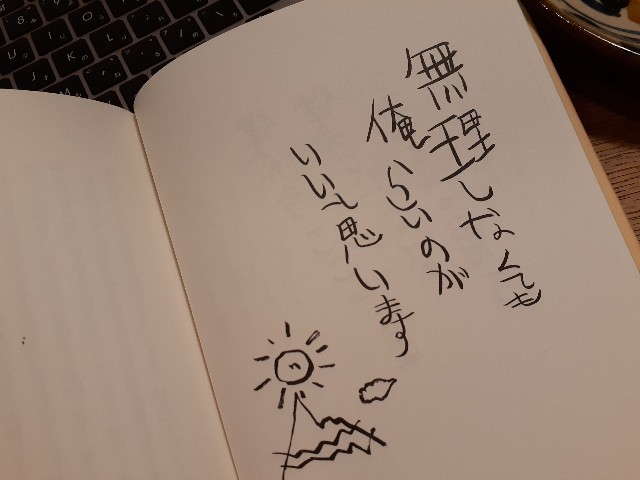 無理しなくても
俺らしいのが
いいと思います